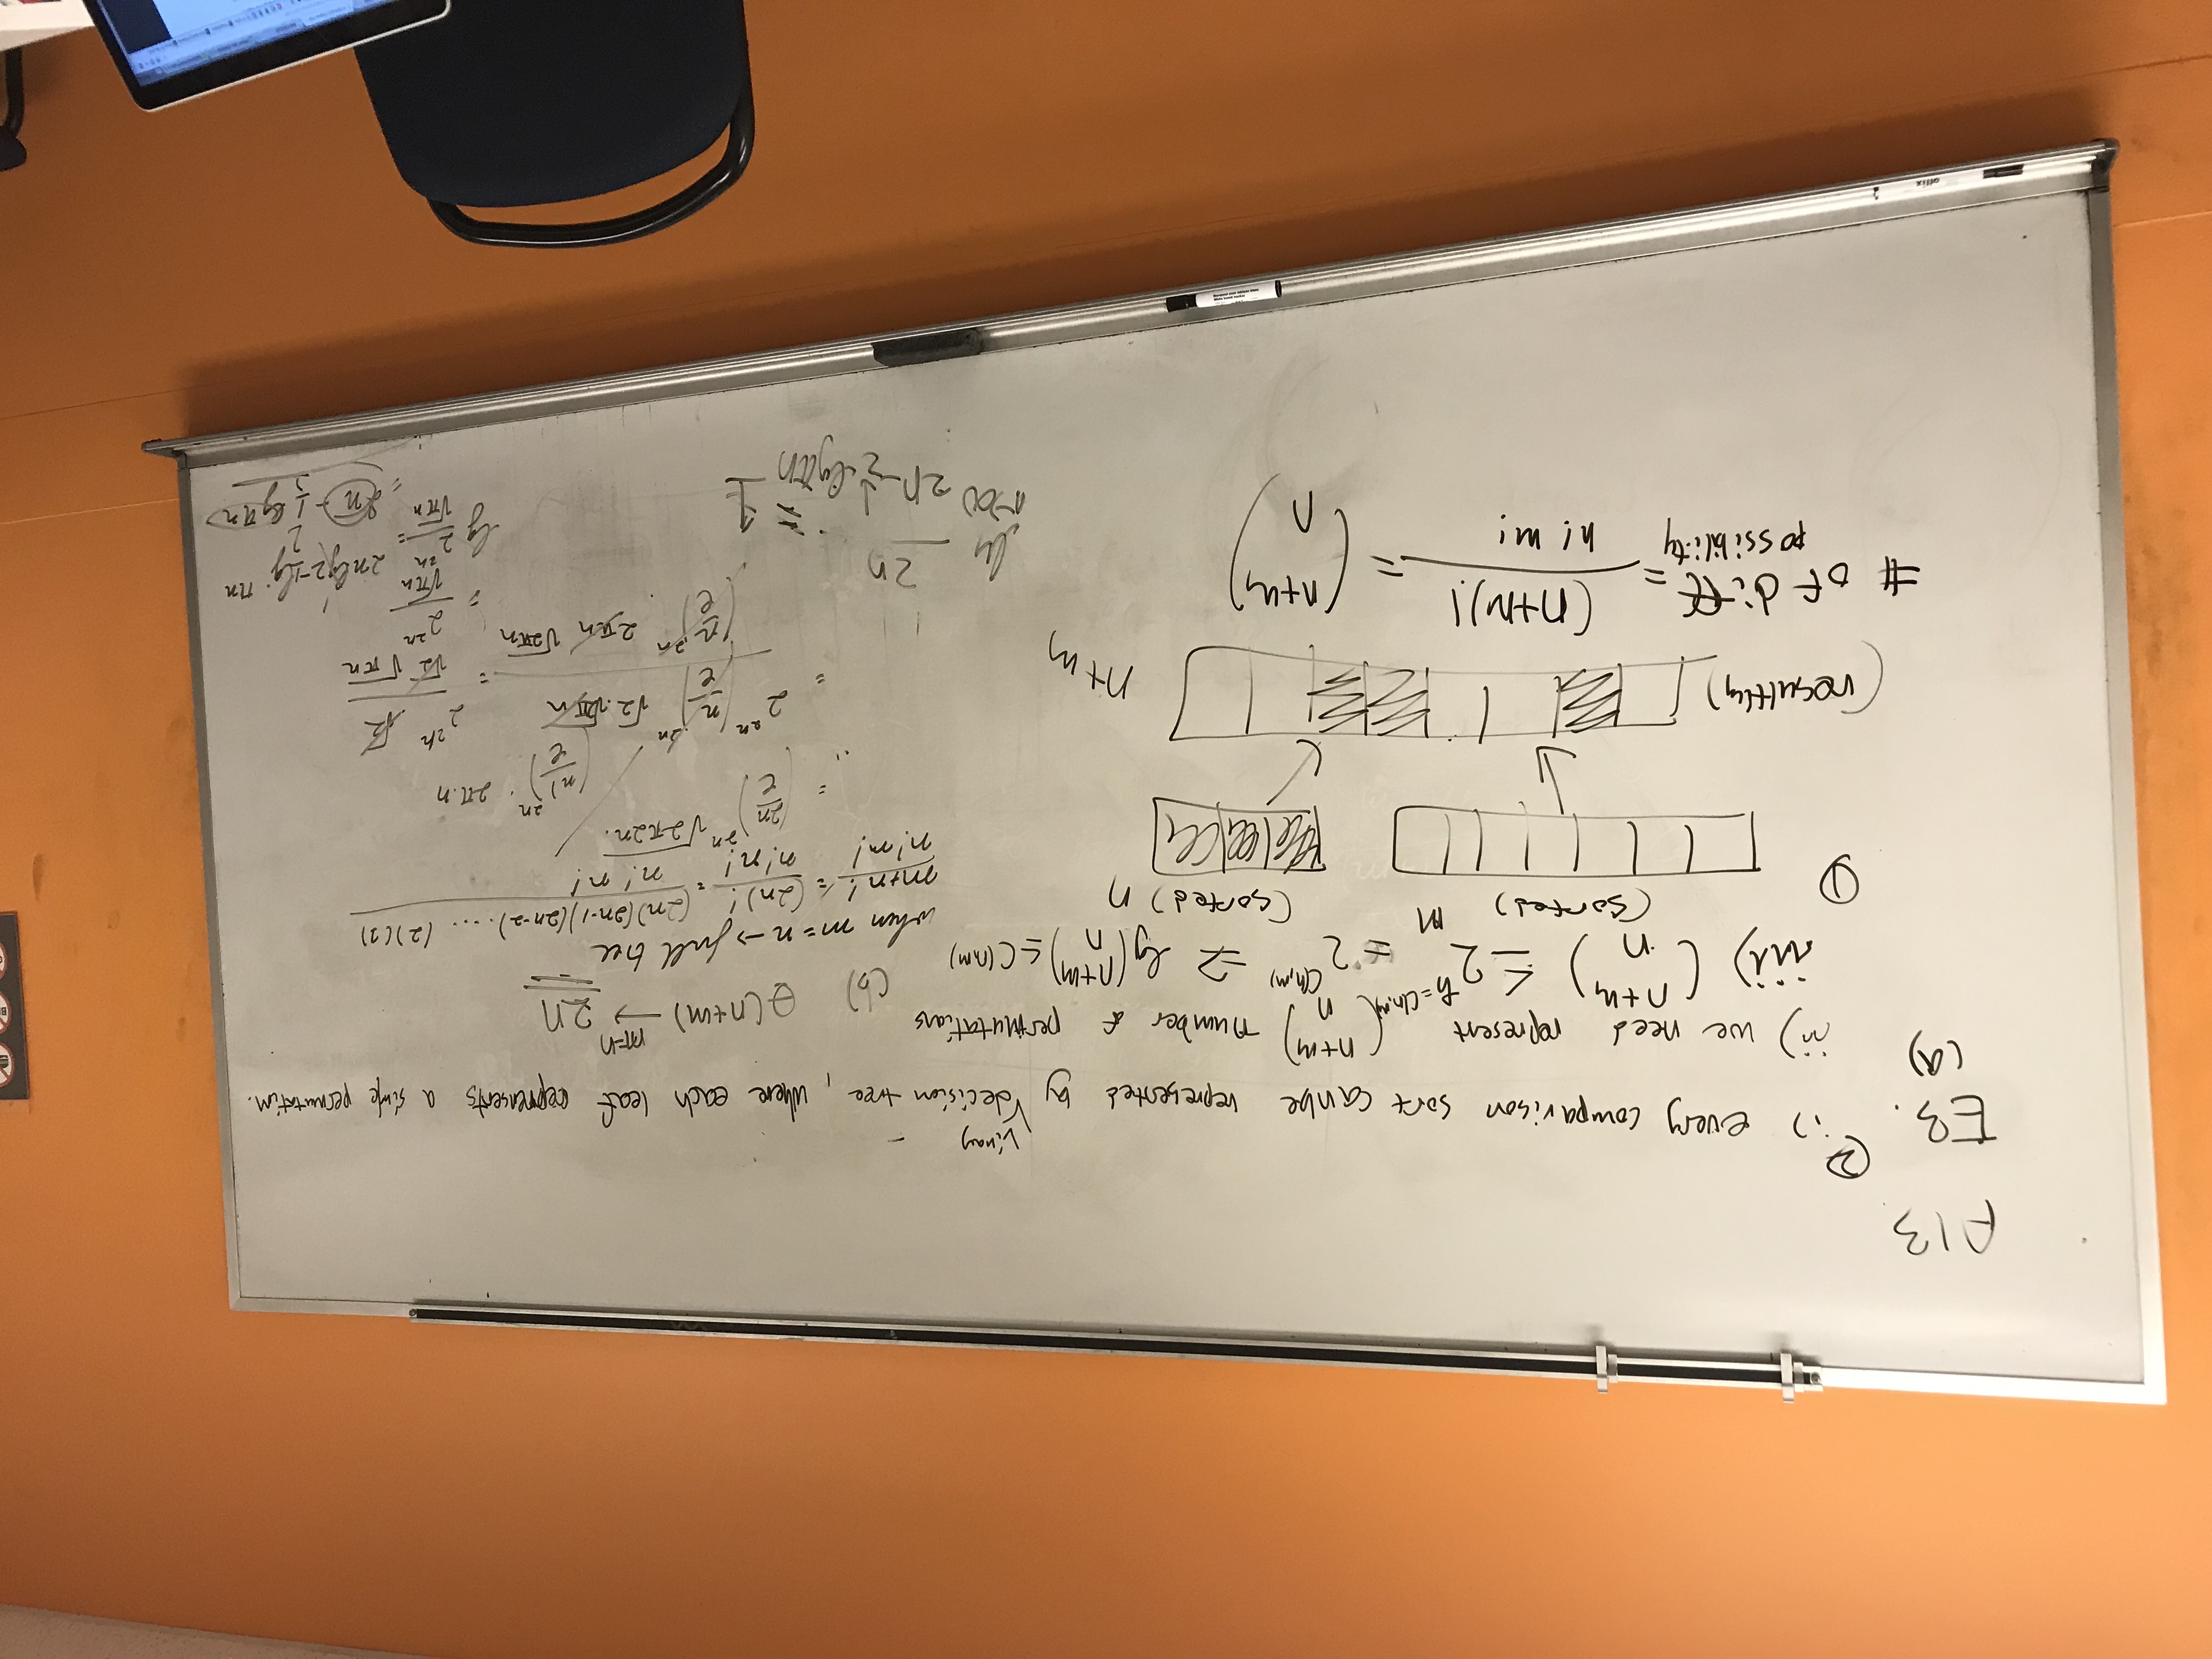 A13
E3.
(a)
② i) every comparison sort can be represented by binay decision tree, where each leaf reprensents a single permutation.
ii) we need represent (n+m n) number of permutations
iii) (n+m n) ≤ 2^h=C(n,m) = 2^C(n,m) ⇒ lg(n+m n) ≤ C(n,m)
① (sorted) m (sorted) n
(resulting) n+m
# of diff possibility = (n+m)! / n! m! = (n+m n)
(b) Θ(n+m) → m=n 2n
when m = n → full tree
m+n! / n!m! = (2n)! / n!n! = (2n)(2n-1)(2n-2).... (2)(1) / n! n!
= (2n/e)^2n √2π2n / (n/e)^2n · 2π·n
= 2^2n (n/e)^2n √2 · √2πn / (n/e)^2n · 2πn √2πn = 2^2n √2 / √2 √πn
= 2^2n / √πn
lg 2^2n / √πn = 2n lg 2 - 1/2 lg πn
= 2n - 1/2 lg πn
lim n→∞ 2n / 2n - 1/2 lg πn = 1
offix